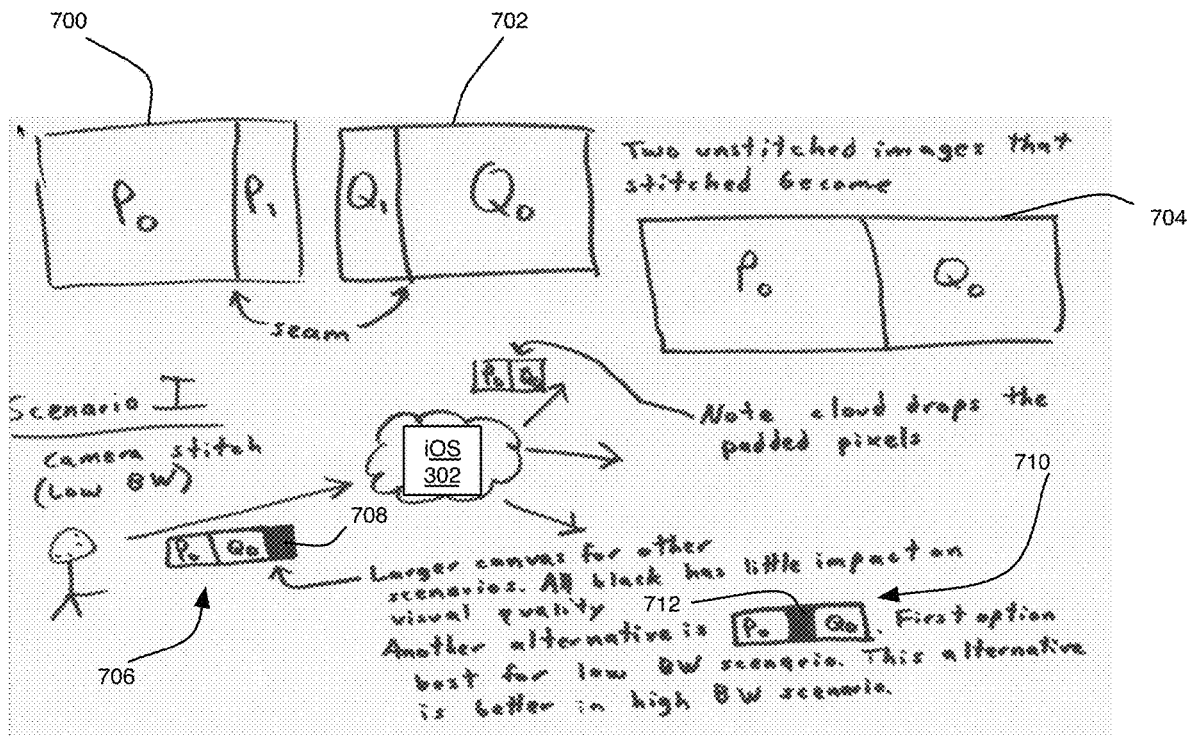 700
702
P₀
P₁
Q₁
Q₀
Two unstitched images that
stitched become
704
P₀
Q₀
seam
P₀
Q₀
Scenario I
camera stitch
(Low BW)
Note cloud drops the
padded pixels
iOS
302
710
708
P₀
Q₀
706
Larger canvas for other
scenarios. All black has little impact on
visual quality
712
Another alternative is P₀ Q₀. First option
best for low BW scenario. This alternative
is better in high BW scenario.